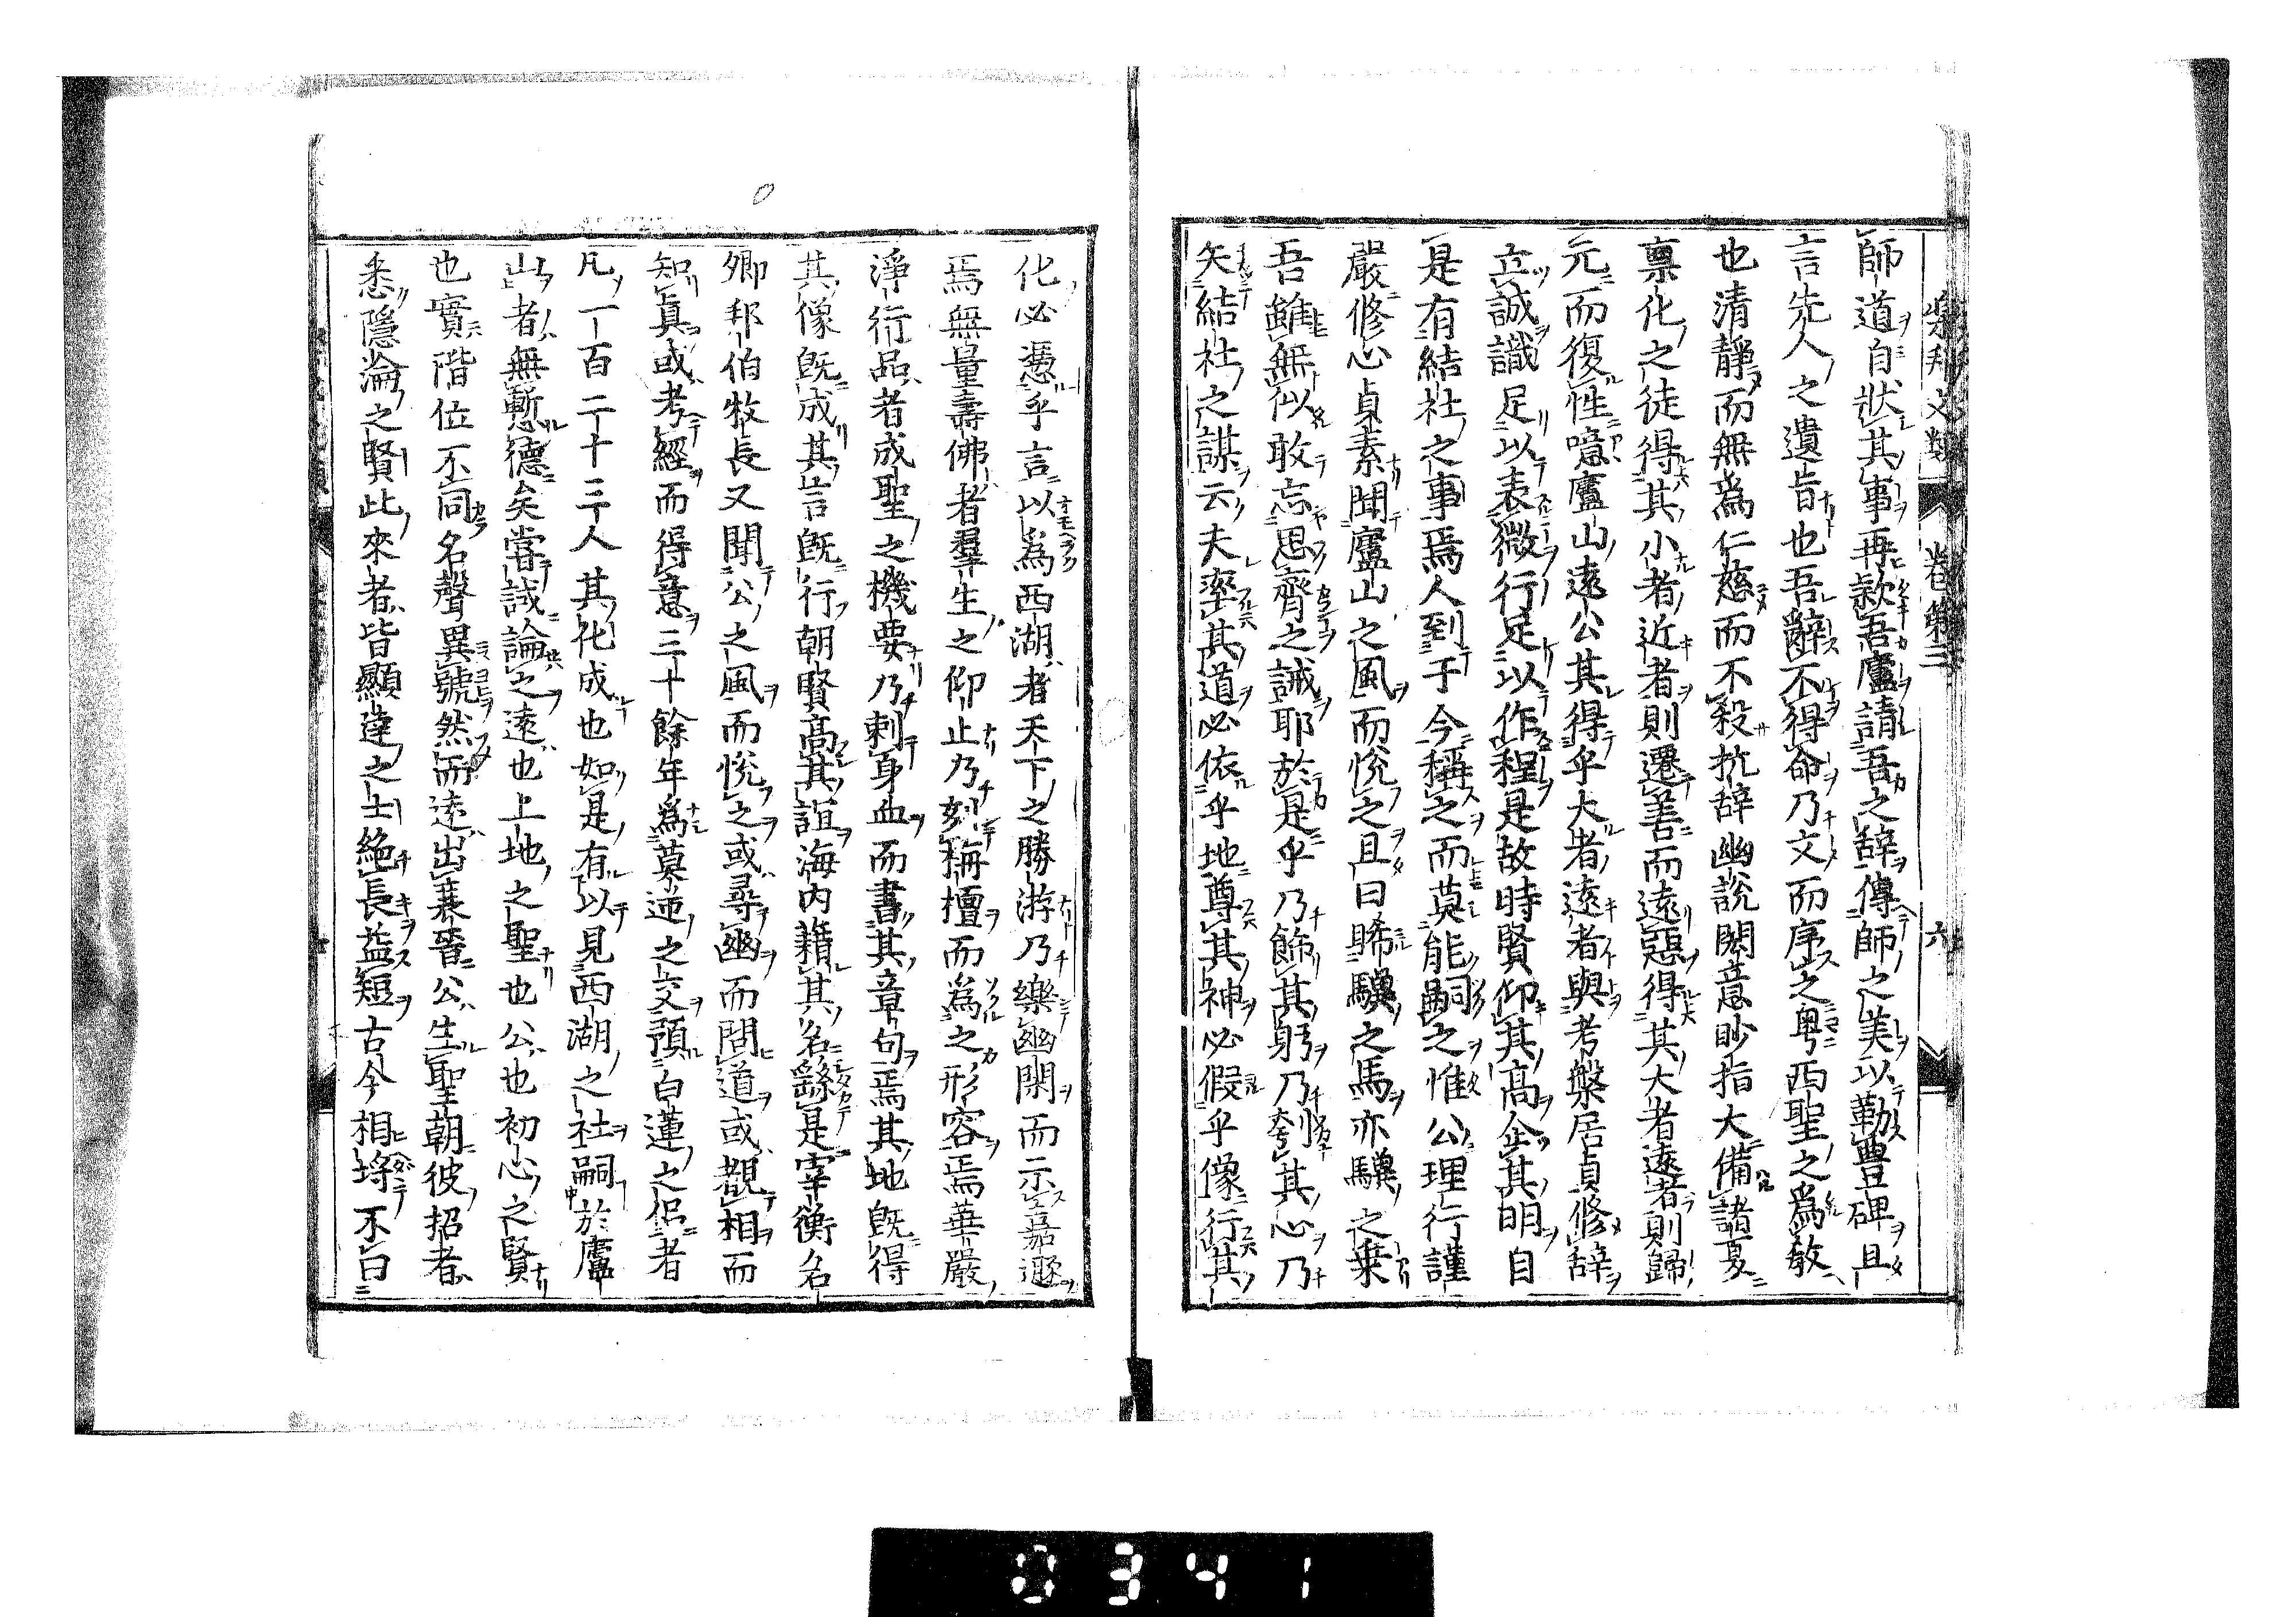 樂邦文類 卷第三 六
師道自狀其事再款吾廬請吾之辭傳師之美以勒豐碑且
言先人之遺旨也吾辭不得命乃文而序之粤西聖之為教
也清靜而無為仁慈而不殺抗辞幽說閎意眇指大備諸夏
稟化之徒得其小者近者則遷善而遠惡得其大者遠者則歸
元而復性噫廬山遠公其得乎大者遠者與考槃居貞修辞
立誠識足以表微行足以作程是故時賢仰其高企其明自
是有結社之事焉人到于今稱之而莫能嗣之惟公理行謹
嚴修心貞素聞廬山之風而悅之且曰睎驥之馬亦驥之乗
吾雖無似敢忘思齊之誡耶於是乎乃飾其躬乃刳其心乃
矢結社之謀云夫率其道必依乎地尊其神必假乎像行其
化必憑乎言以為西湖者天下之勝游乃樂幽閑而示嘉遯
焉無量壽佛者羣生之仰止乃刻栴檀而為之形容焉華嚴
淨行品者成聖之機要乃刺身血而書其章句焉其地既得
其像既成其言既行朝賢高其誼海内籍其名繇是宰衡名
卿邦伯牧長又聞公之風而悅之或尋幽而問道或覩相而
知真或考經而得意三十餘年為莫逆之交預白蓮之侣者
凡一百二十三人其化成也如是有以見西湖之社嗣於廬
山者無慙德矣嘗試論之遠也上地之聖也公也初心之賢
也實階位不同名聲異號然而遠出衰晉公生聖朝彼招者
悉隱淪之賢此來者皆顯達之士絶長益短古今相埒不曰
0341